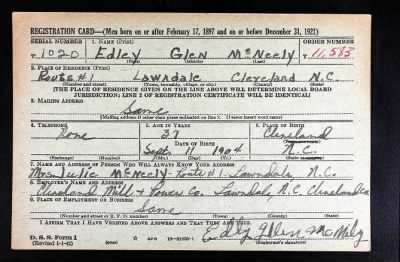 REGISTRATION CARD—(Men born on or after February 17, 1897 and on or before December 31, 1921)
SERIAL NUMBER 1. NAME (Print) ORDER NUMBER
T 1020 Edley Glen McNeely T 11,583
(First) (Middle) (Last)
2. PLACE OF RESIDENCE (Print)
Route #1 Lawndale Cleveland N.C.
(Number and street) (Town, township, village, or city) (County) (State)
[THE PLACE OF RESIDENCE GIVEN ON THE LINE ABOVE WILL DETERMINE LOCAL BOARD
JURISDICTION; LINE 2 OF REGISTRATION CERTIFICATE WILL BE IDENTICAL]
3. MAILING ADDRESS
Same
[Mailing address if other than place indicated on line 2. If same insert word same]
4. TELEPHONE 5. AGE IN YEARS 6. PLACE OF BIRTH
None 37 Cleveland
DATE OF BIRTH (Town or county)
Sept. 11 1904 N.C.
(Exchange) (Number) (Mo.) (Day) (Yr.) (State or country)
7. NAME AND ADDRESS OF PERSON WHO WILL ALWAYS KNOW YOUR ADDRESS
Mrs Julie McNeely Route #1 Lawndale, N.C.
8. EMPLOYER'S NAME AND ADDRESS
Cleveland Mill & Power Co. Lawndale, N.C. Cleveland Co
9. PLACE OF EMPLOYMENT OR BUSINESS
Same
(Number and street or R. F. D. number) (Town) (County) (State)
I AFFIRM THAT I HAVE VERIFIED ABOVE ANSWERS AND THAT THEY ARE TRUE.
D. S. S. Form 1 Edly Glen McNely
(Revised 1-1-42) (over) (Registrant's signature)